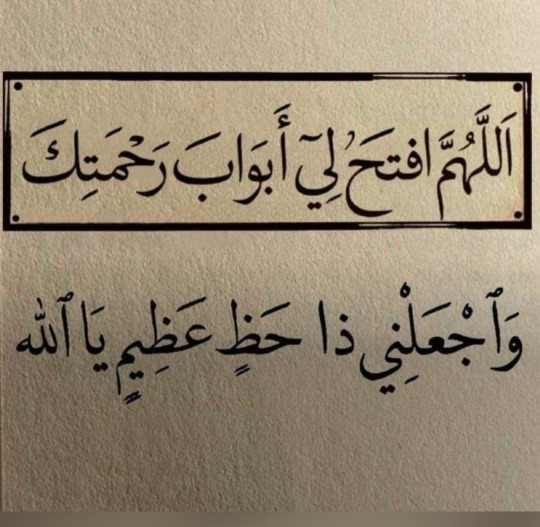 اَللَّهُمَّ افتَحَ لِي أَبوَابَ رَحْمَتِكَ
وَٱجْعَلْنِي ذا حَظٍ عَظِيمٍ يَا ٱلله